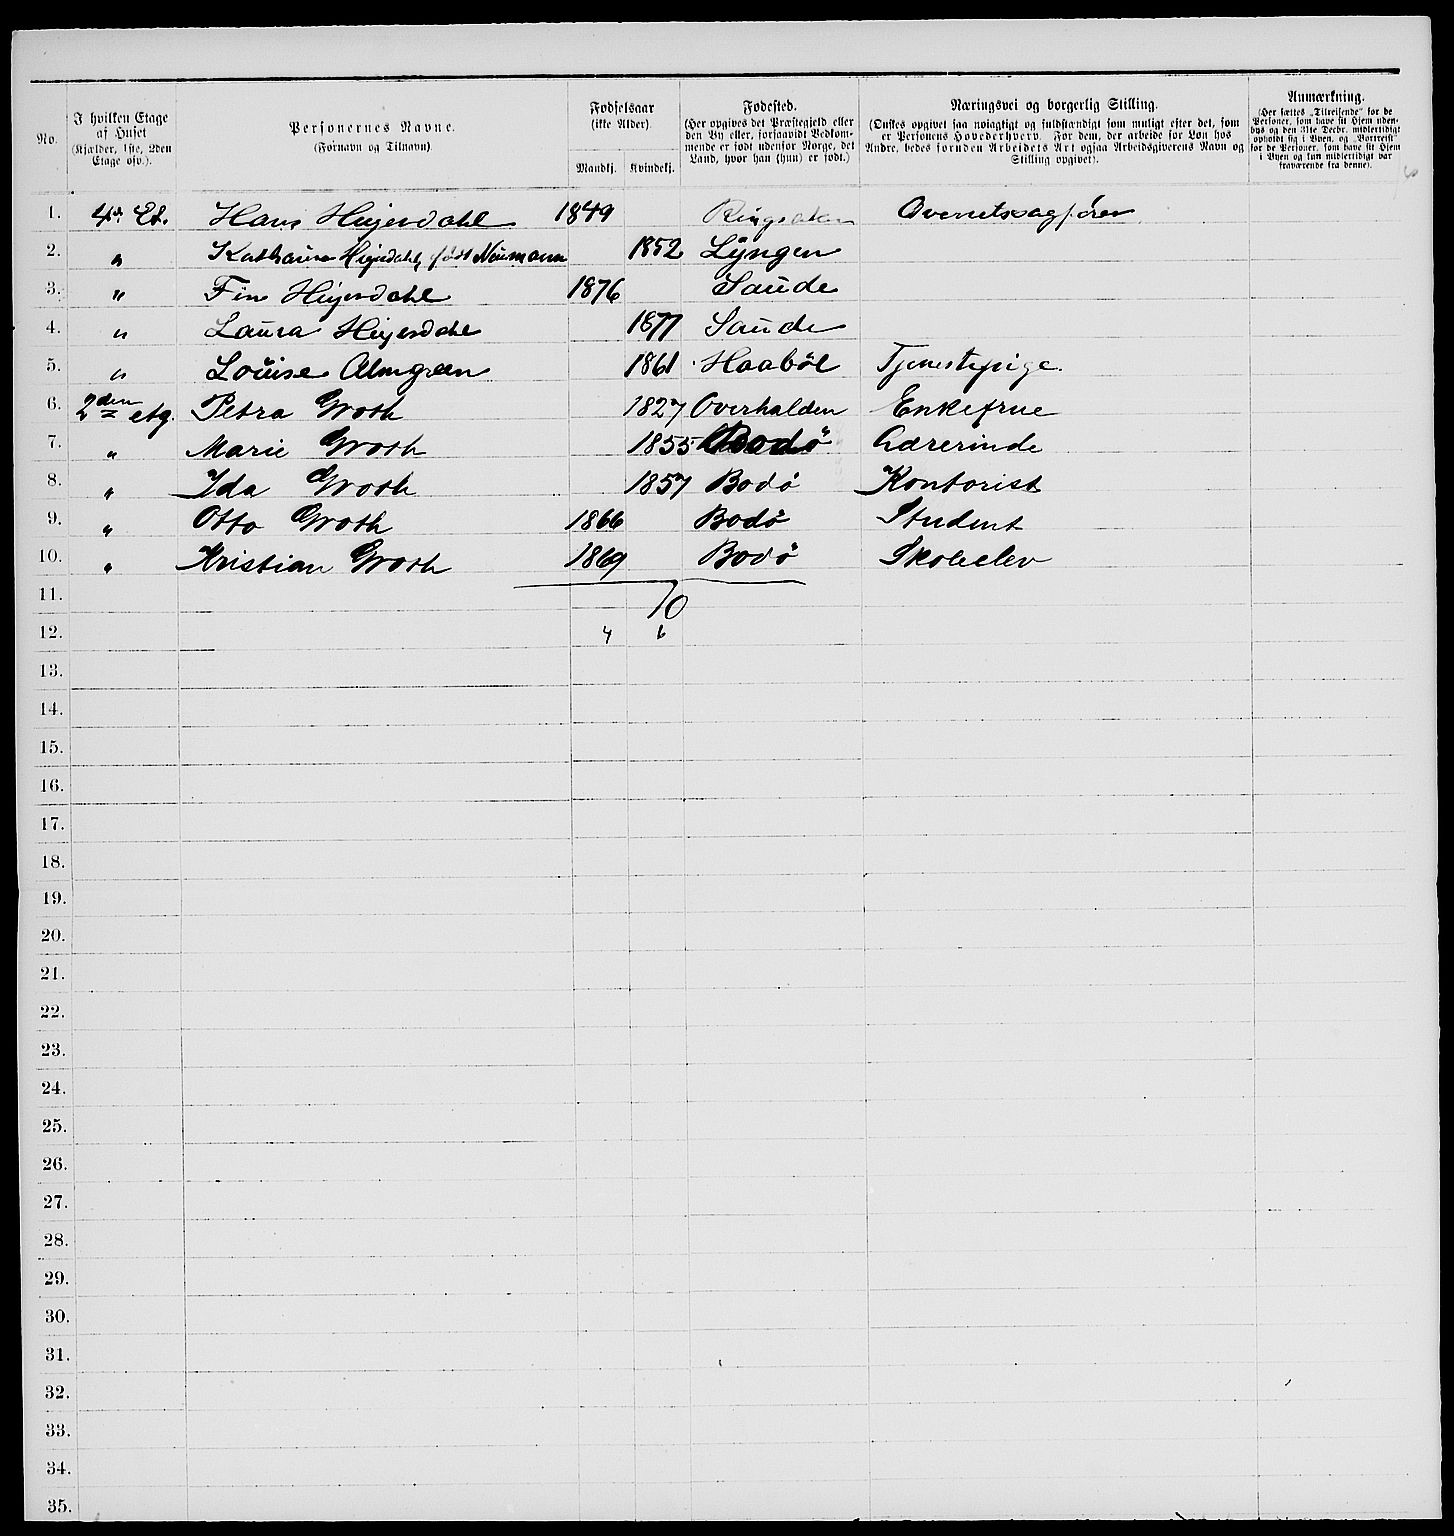 No.
I hvilken Etage
af Huset
(Kjælder, 1ste, 2den
Etage osv.).
Personernes Navne.
(Fornavn og Tilnavn).
Fødselsaar
(ikke Alder).
Mandkj. Kvindekj.
Fødested.
(Her opgives det Præstegjeld eller
den By eller, forsaavidt Vedkom-
mende er født udenfor Norge, det
Land, hvor han (hun) er født.)
Næringsvei og borgerlig Stilling.
(Ønskes opgivet saa nøiagtigt og fuldstændigt som muligt efter det, som
er Personens Hovederhverv. For dem, der arbeide for Løn hos
Andre, bedes foruden Arbeidets Art ogsaa Arbeidsgiverens Navn og
Stilling opgivet).
Anmærkning.
(Her sættes „Tilreisende" for de
Personer, som have sit Hjem uden-
bys og den 31te Decbr. midlertidigt
opholdt sig i Byen, og „Bortreist"
for de Personer, som have sit Hjem
i Byen og kun midlertidigt var
fraværende fra denne).
1. 4de Et. Hans Heyerdahl 1849 Ringsaker Overretssagfører
2. " Katharina Heyerdahl, født Neumann 1852 Lyngen
3. " Finn Heyerdahl 1876 Saude
4. " Laura Heyerdahl 1877 Saude
5. " Louise Almgreen 1861 Haaböl Tjenestepige.
6. 2den etg. Petra Groth 1827 Overhalden Enkefrue
7. " Marie Groth 1855 Bodö Lærerinde
8. " Ida Groth 1857 Bodö Kontorist
9. " Otto Groth 1866 Bodö Student
10. " Kristian Groth 1869 Bodö Skoleelev
11. 10
12. 4 6
13.
14.
15.
16.
17.
18.
19.
20.
21.
22.
23.
24.
25.
26.
27.
28.
29.
30.
31.
32.
33.
34.
35.